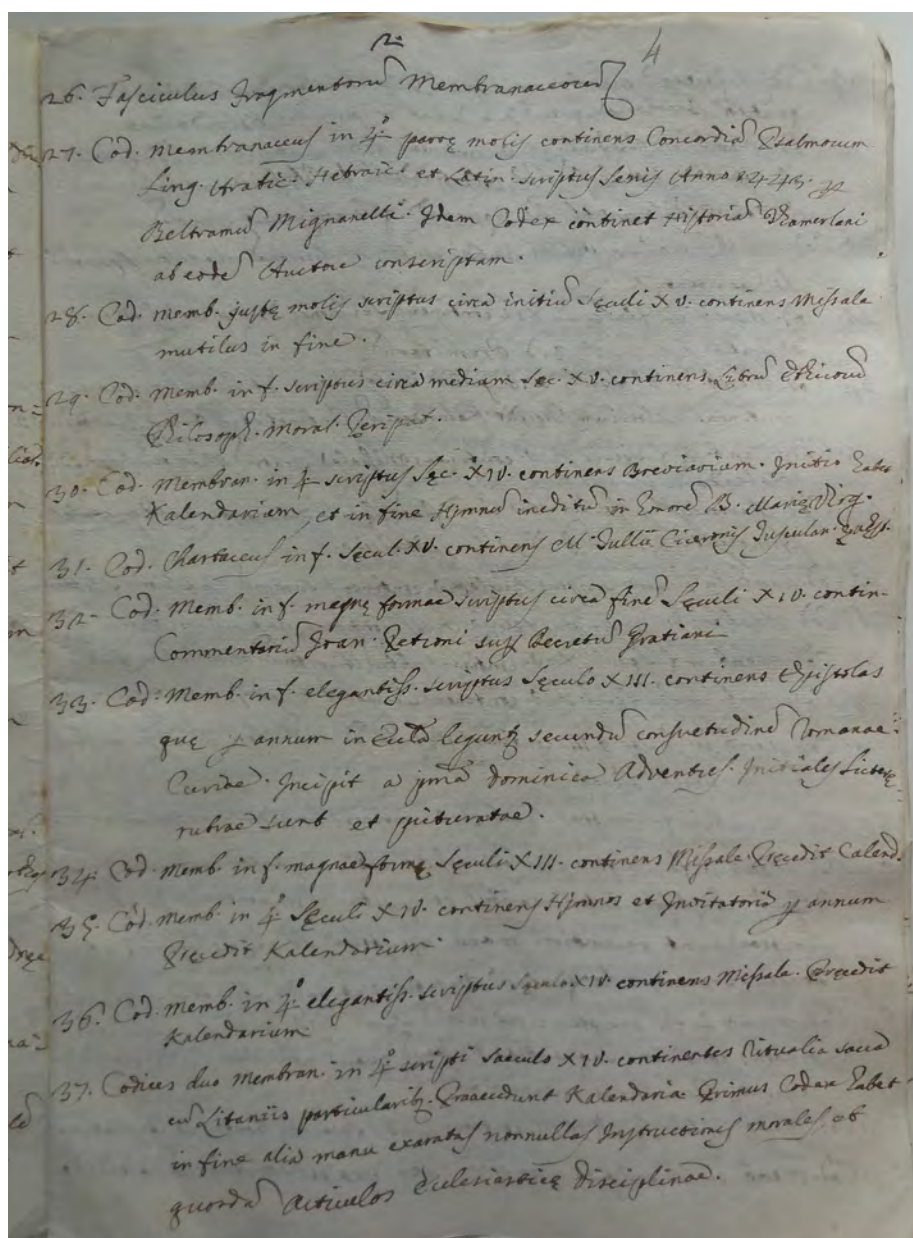 2. 4
26. Fasciculus Fragmentorũ Membranaceorũ
27. Cod. Membranaceus in 4º parvę molis continens Concordiã Psalmorum
Ling. Arabic. Hebraic. et Latin. scriptus Senis Anno 1443. p
Beltramũ Mignanelli. Idem Codex continet Historiã Thamerlani
ab eodẽ Auctore conscriptam.
28. Cod. memb. justę molis scriptus circa initiũ Sęculi XV. continens Missale
mutilus in fine.
29. Cod. Memb. in f. scriptus circa mediam Sec. XV. continens Librũ Ethicorũ
Philosoph. Moral. Peripat.
30. Cod. Membran. in 4º scriptus Sęc. XIV. continens Breviarium. Initio habet
Kalendarium, et in fine Hymnũ ineditũ in honorẽ B. Marię Virg.
31. Cod. Chartaceus in f. Secul. XV. continens M. Tullii Ciceronis Tusculan. Quęst.
32. Cod. Memb. in f. magnę formae scriptus circa finẽ Sęculi XIV. contin.
Commentariũ Joan. Petroni sup Decretũ Gratiani
33. Cod. Memb. in f. elegantiss. scriptus Sęculo XIII. continens Epistolas
quę p annum in Eccla legunt secundũ consuetudinẽ Romanae
Curiae. Incipit a pma Dominica Adventus. Initiales Litterę
rubrae sunt et picturatae.
34. Cod. Memb. in f. magnae formę Sęculi XIII. continens Missale Pręcedit Calend.
35. Cod. memb. in 4º Sęculi XIV. continens Hymnos et Invitatoria p annum
Pręcedit Kalendarium.
36. Cod. memb. in 4º elegantiss. scriptus Sęculo XIV. continens Missale. Pręcedit
Kalendarium
37. Codices duo Membran. in 4º scripti Saeculo XIV. continentes Ritualia sacra
cũ Litaniis particularib. Praecedunt Kalendaria. Primus Codex habet
in fine alia manu exaratas nonnullas Instructiones morales, et
quosdã Articulos Eclesiasticę Disciplinae.